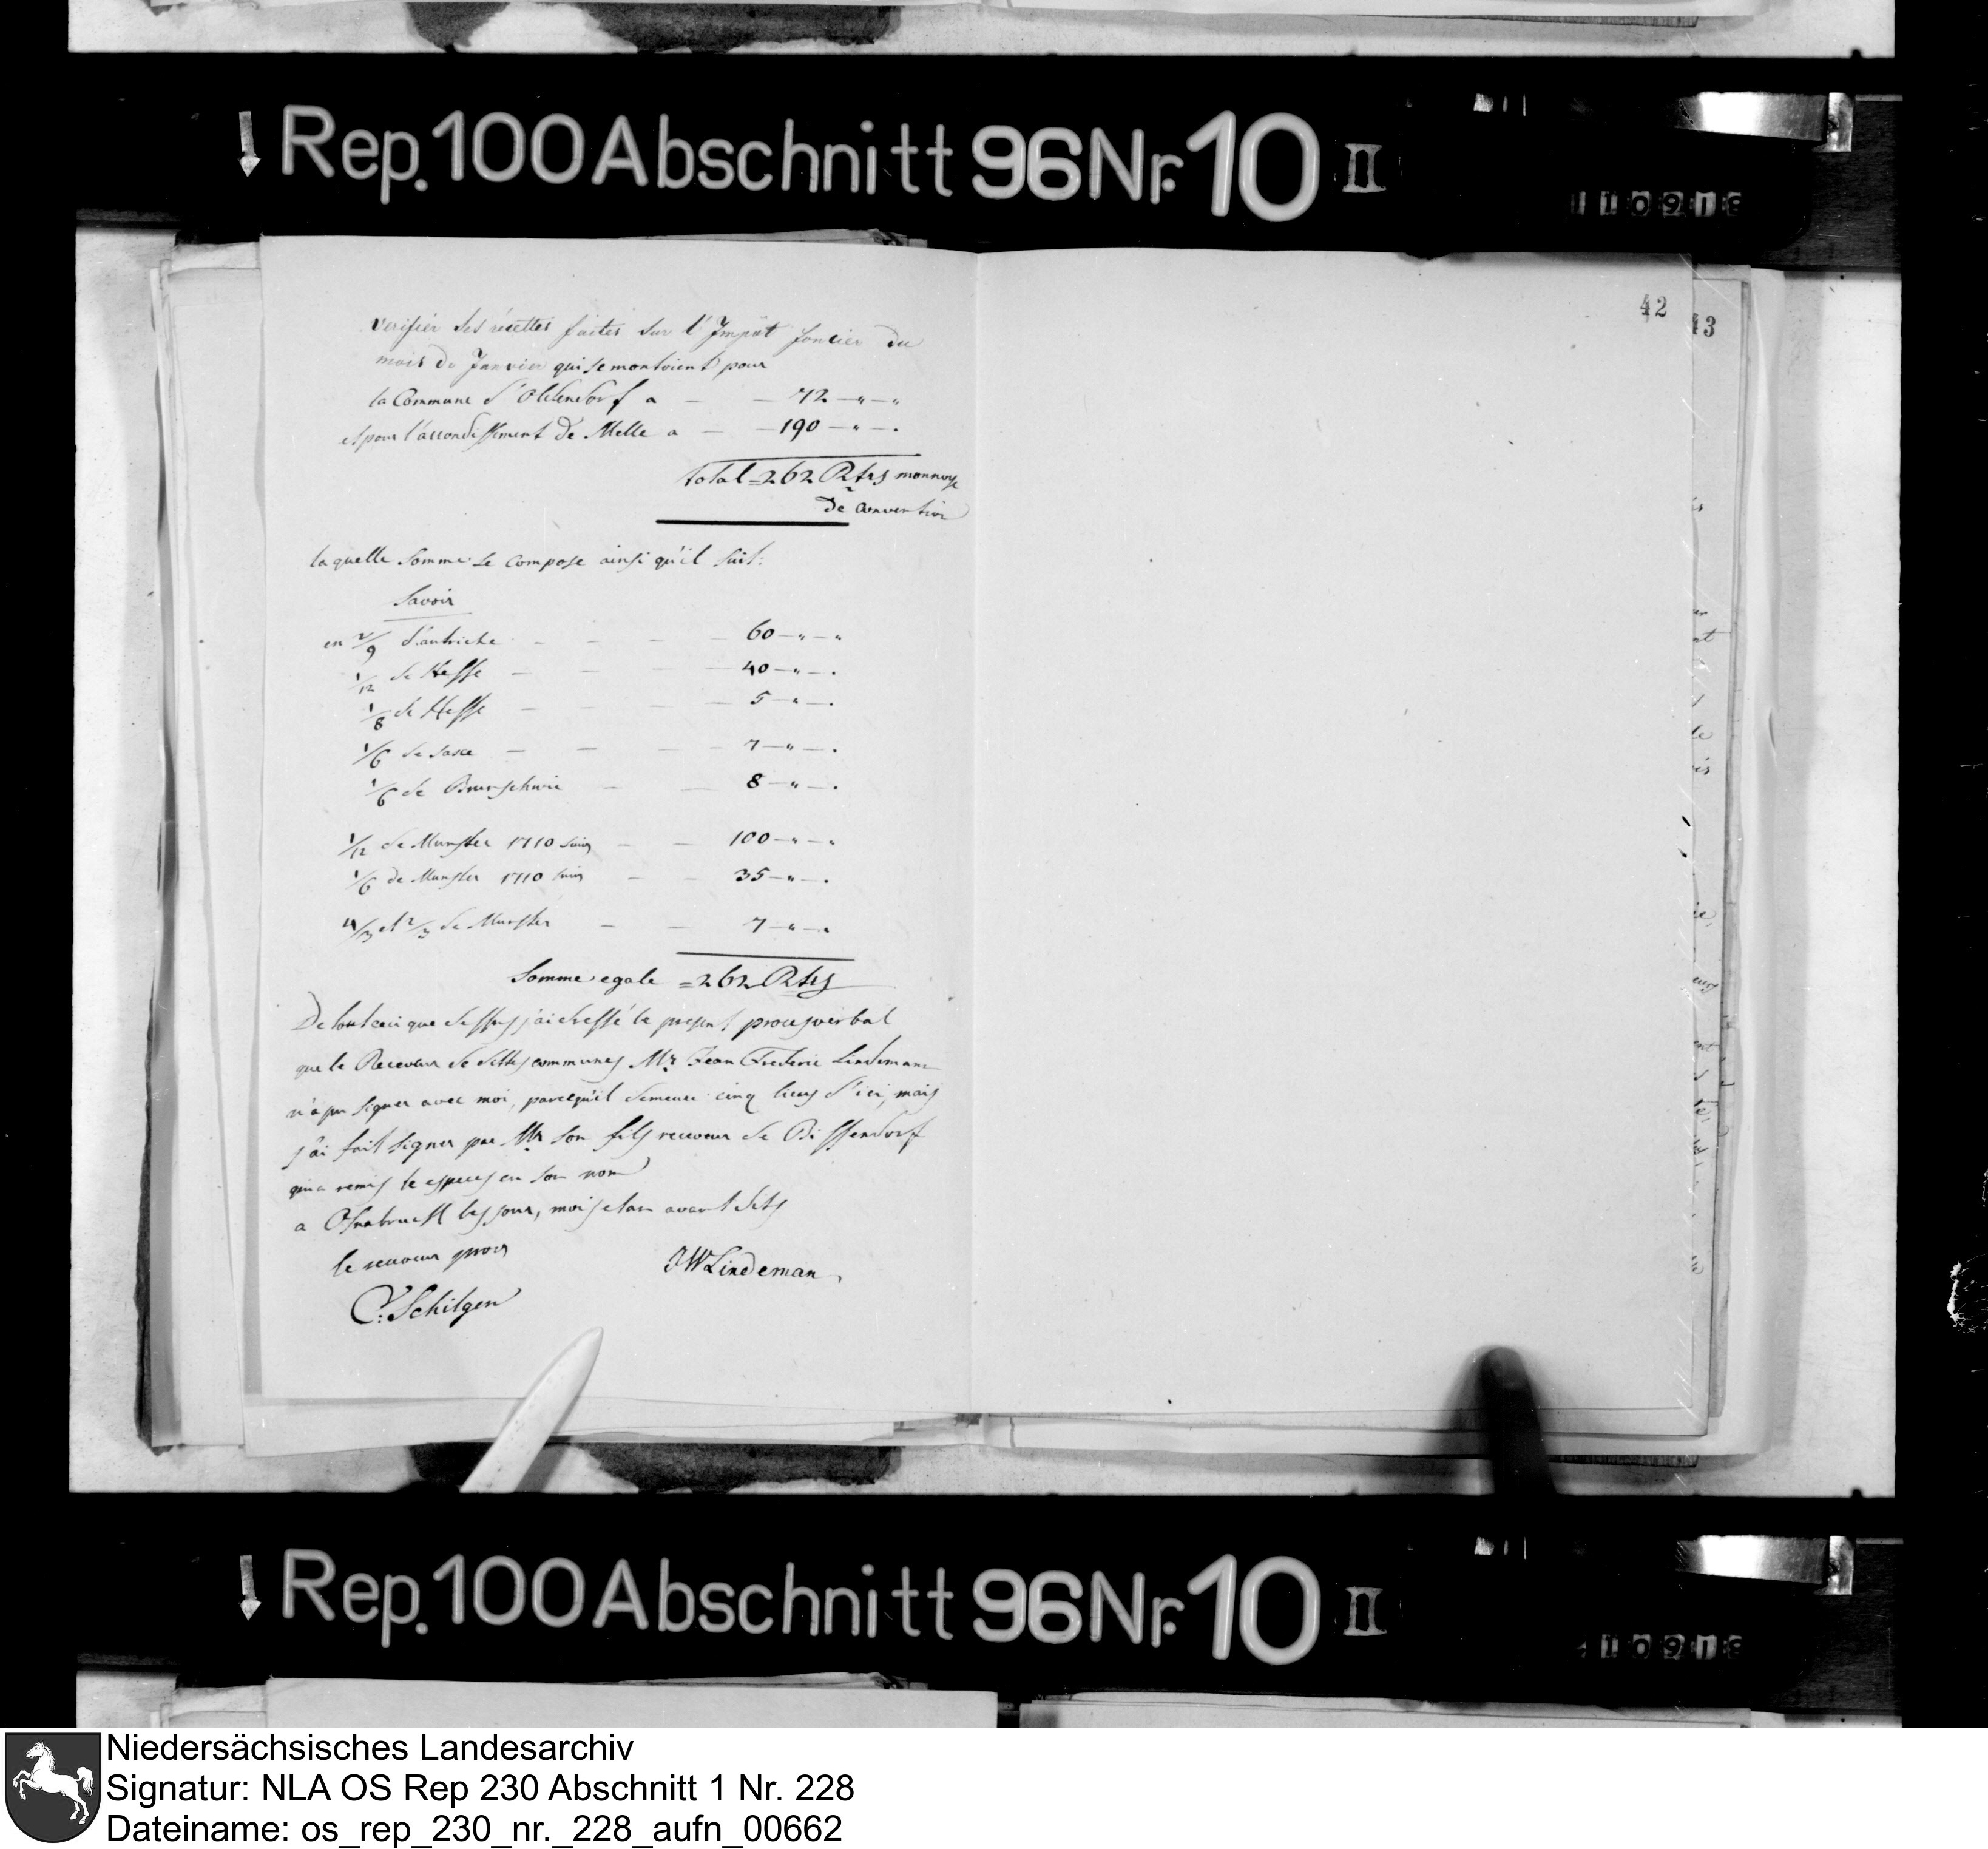 Rep. 100 Abschnitt 96 Nr. 10 II
110913
42
43
verifiér des récettes faites sur l'Impôt foncier du
mois de Janvier qui se montoient pour
la Commune d'Oldendorf a — — 72 — " — "
et pour l'arrondissement de Melle a — — 190 — " — "
total = 262 Rtrs monnoye
de convention
laquelle somme se compose ainsi qu'il suit:
Savoir
en 2/9 d'autriche — — — — 60 — " — "
1/12 de Hesse — — — — 40 — " — "
1/8 de Hesse — — — — 5 — " — "
1/6 de Saxe — — — — 7 — " — "
1/6 de Brunschwic — — 8 — " — "
1/12 de Munster 1710 — — 100 — " — "
1/6 de Munster 1710 — — 35 — " — "
4/3 et 2/3 de Munster — — 7 — " — "
Somme egale = 262 Rtrs
De tout ceci que dessus j'ai dressé le present procesverbal
que le Receveur de dittes communes Mr. Jean Frederic Lindemann
n'a pu signer avec moi, parcequ'il demeure cinq lieus d'ici, mais
j'ai fait signer par Mr son fils receveur de Bissendorf
qui a remis le especes en son nom
a Osnabruck les jour, mois et an avant dits
le receveur prov
JWLindeman
C. Schilgen
Rep. 100 Abschnitt 96 Nr. 10 II
10913
Niedersächsisches Landesarchiv
Signatur: NLA OS Rep 230 Abschnitt 1 Nr. 228
Dateiname: os_rep_230_nr._228_aufn_00662